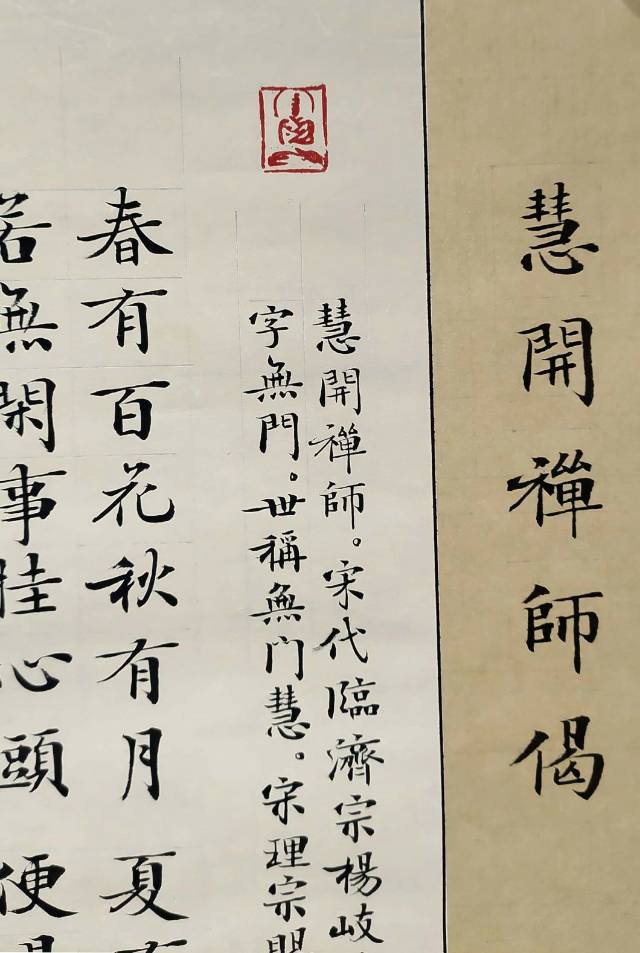 慧開禪師偈
慧開禪師。宋代臨濟宗楊岐
字無門。世稱無門慧。宋理宗
春有百花秋有月 夏
若無閑事挂心頭 便